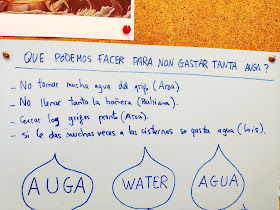 QUE PODEMOS FACER PARA NON GASTAR TANTA AUGA?
- No tomar mucha agua del grifo (Aroa).
- No llenar tanto la bañera (Baliana).
- Cerrar los grifos pronto (Aroa).
- Si le das muchas veces a las cisternas se gasta agua (Lois).
AUGA WATER AGUA